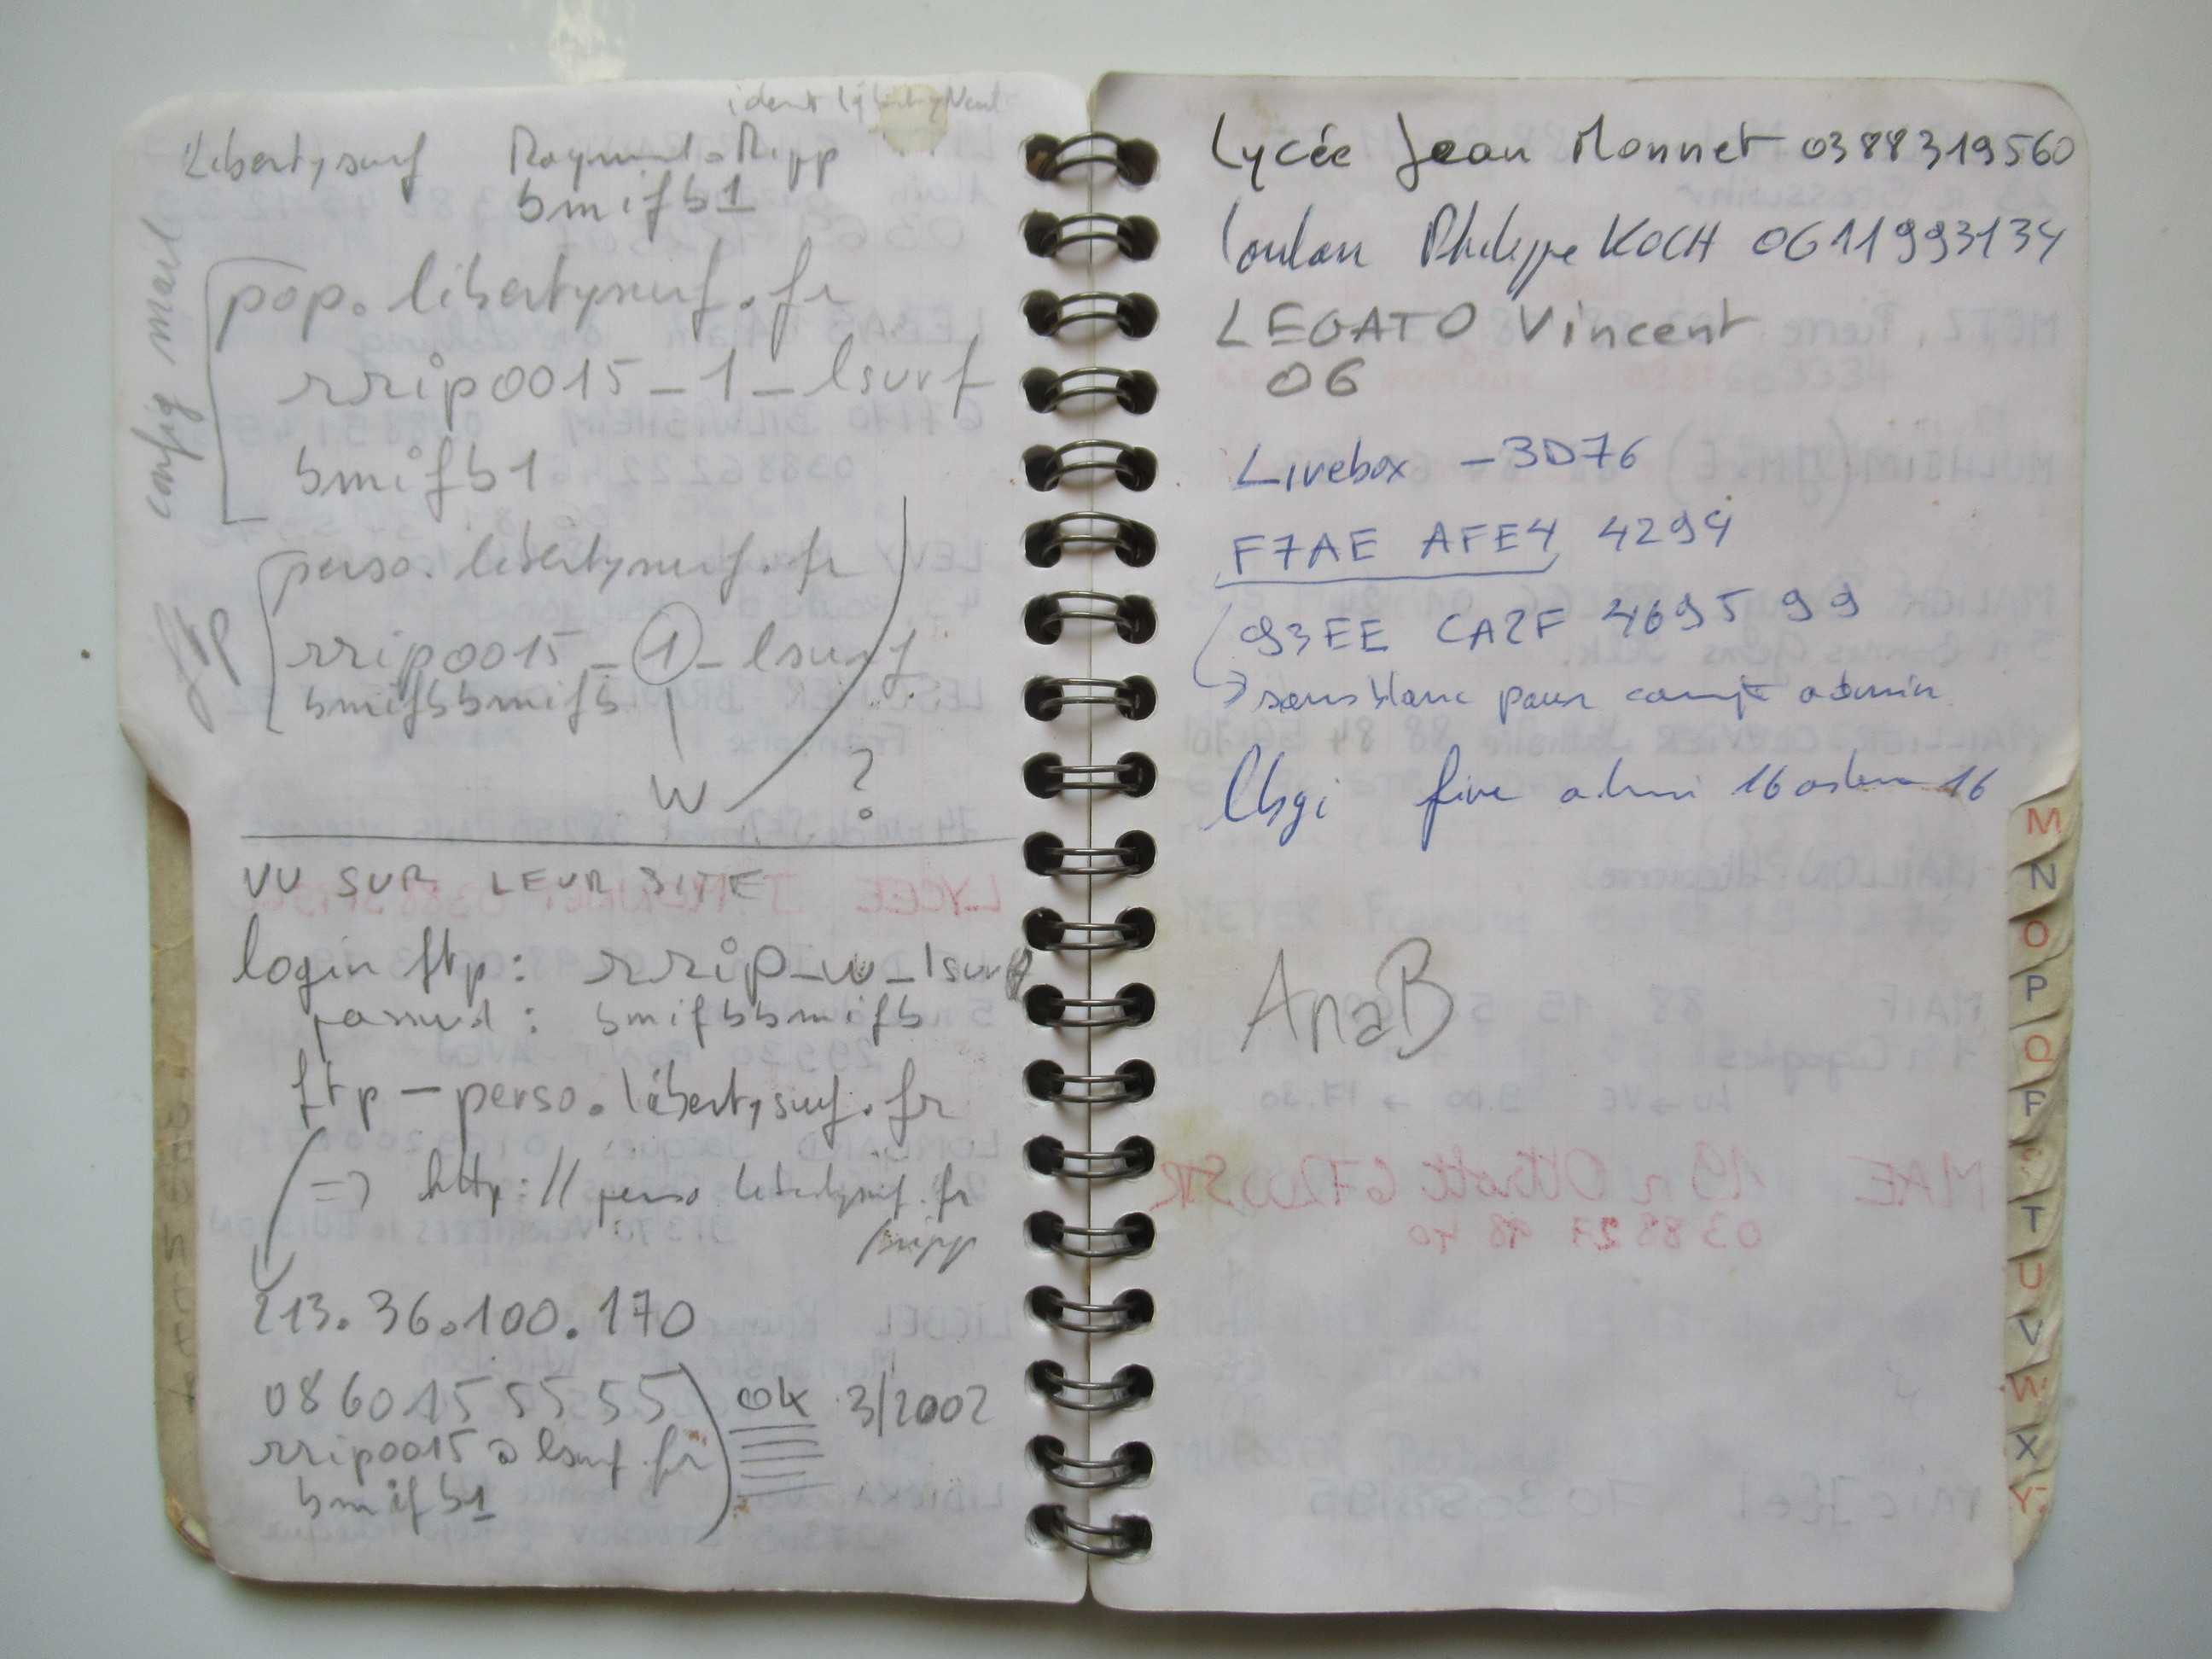 Libertysurf Raymond.Ripp
bmifb1
config mail
pop.libertysurf.fr
rrip0015_1_lsurf
bmifb1
ftp
perso.libertysurf.fr
rrip0015_1_lsurf
bmifbbmifb
W ?
VU SUR LEUR SITE
login ftp: rrip_w_lsurf
passwd: bmifbbmifb
ftp-perso.libertysurf.fr
=> http://perso.libertysurf.fr
/rripp
213.36.100.170
0860155555 OK 3/2002
rrip0015@lsurf.fr
bmifb1
Lycée Jean Monnet 0388319560
Philippe KOCH 0611993134
LEGATO Vincent
06
Livebox -3D76
F7AE AFE4 4294
93EE CA2F 4695 99
sans blanc pour compte admin
16 16
AnaB
M
N
O
P
Q
R
T
U
V
W
X
Y